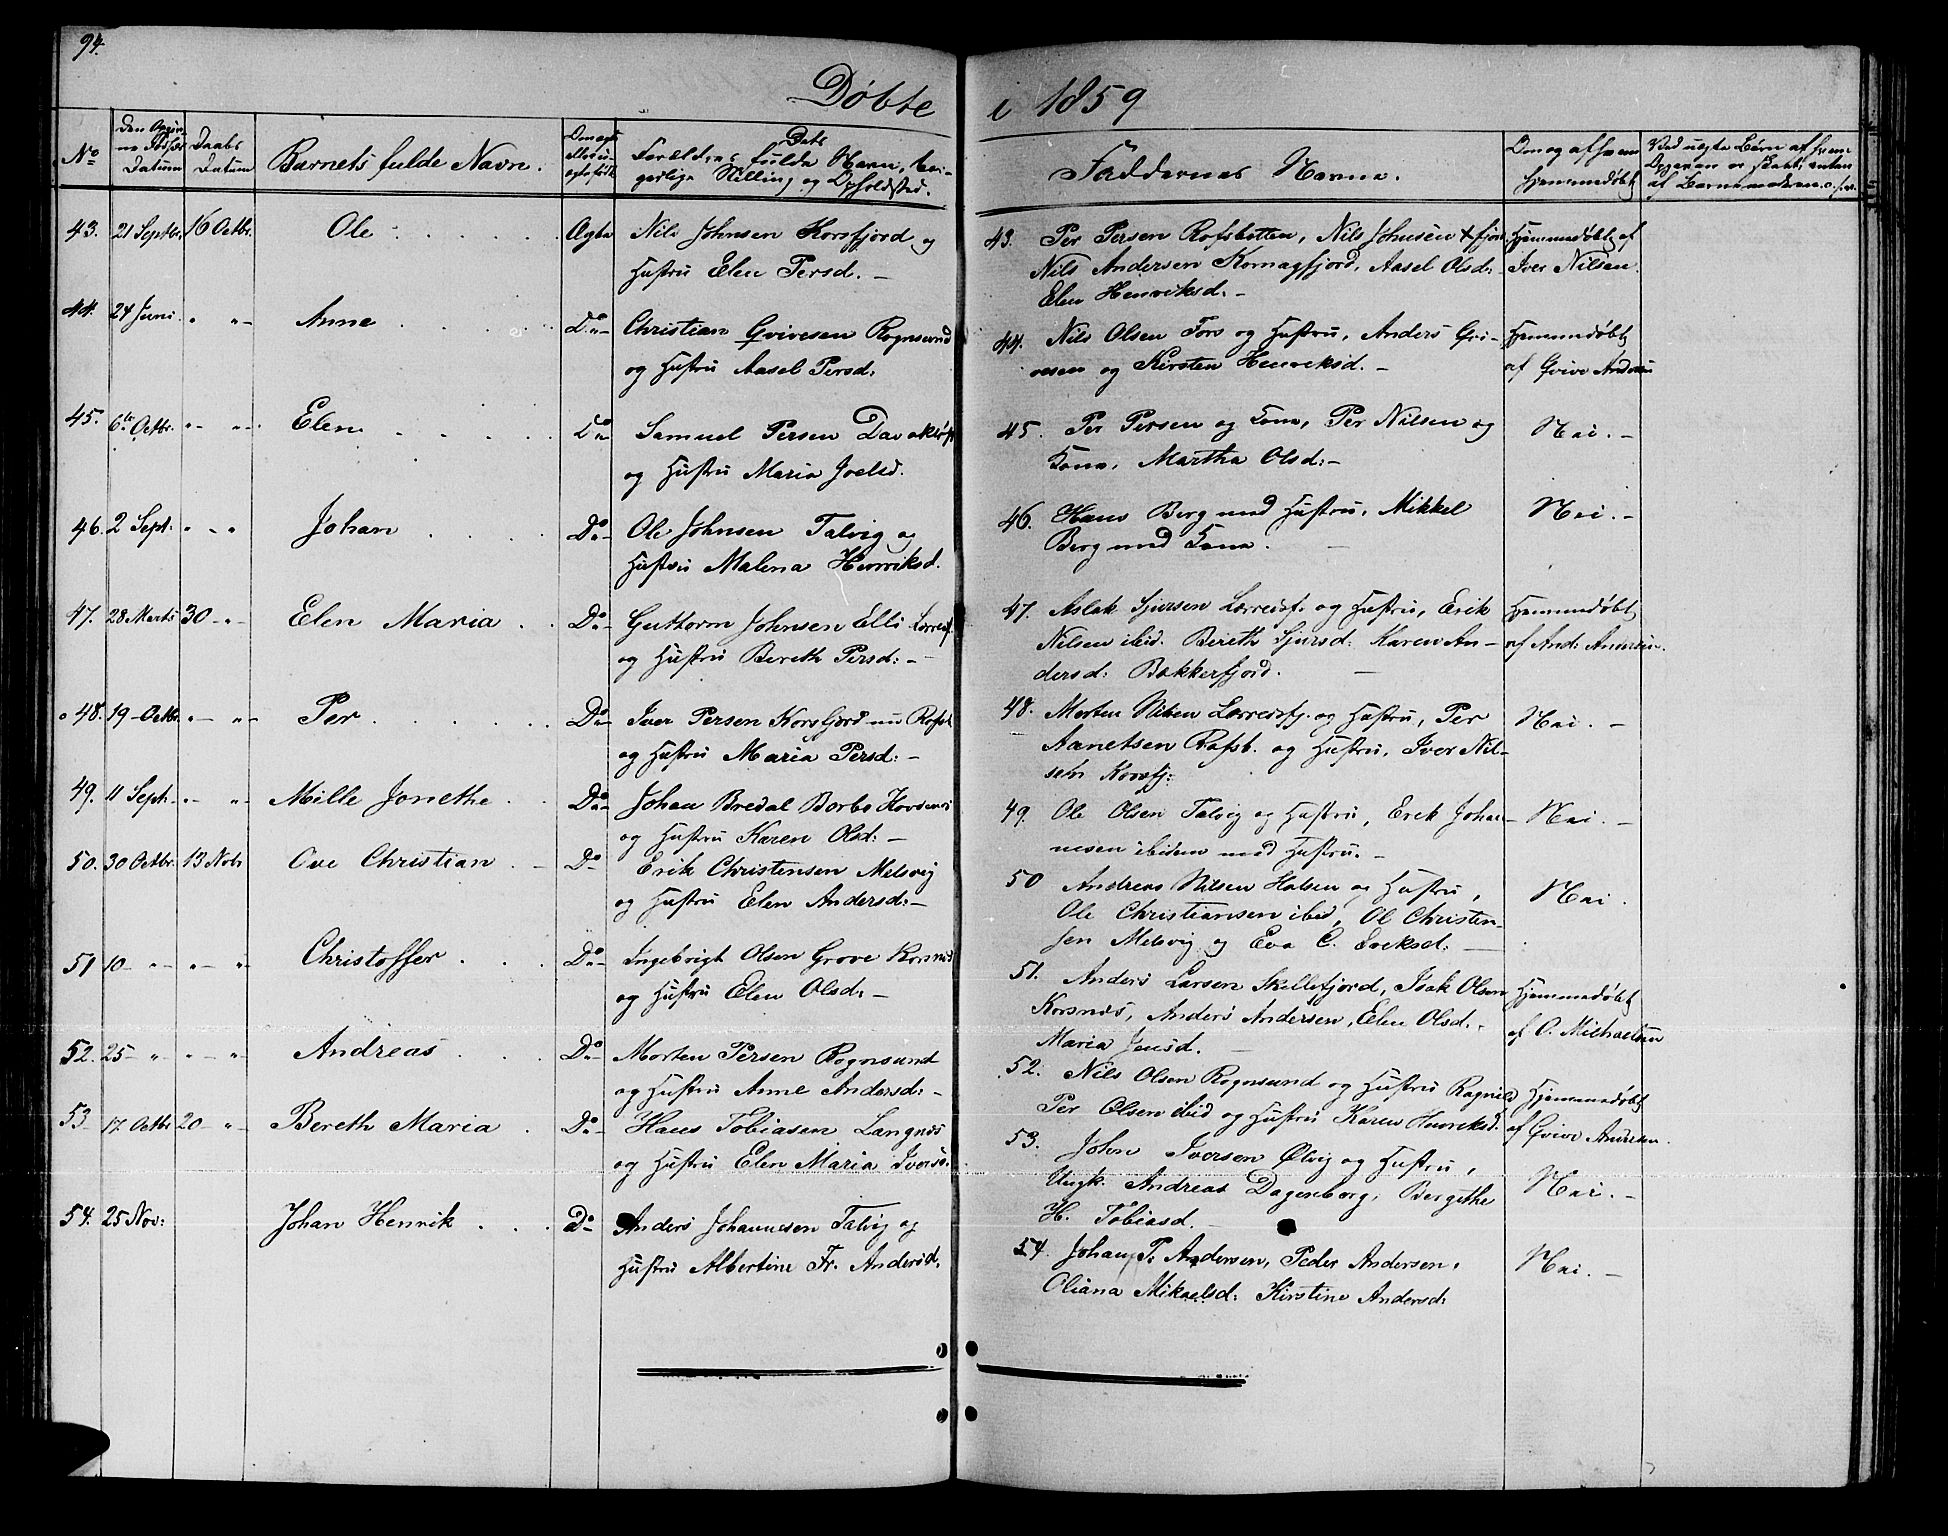 94.
Døbte i 1859
No
Datum
Daabs Datum
Barnets fulde Navn.
Forældres fulde Navn, bor-
gerlige Stilling og Opholdsted.
Faddernes Navne.
Om og af hvem
hjemmedøbt
43. 21 Septbr. 16 Octbr. Ole Ægte Nils Johnsen Korsfjord og
Hustru Elen Persd. –
44. 24 Juni " " – Anne Do Christian Qvivesen Rognsund
og Hustru Aasel Persd:
45. 6te Octbr. " – " – Elen Do Samuel Persen
og Hustru Maria Joelsd.
46. 2 Sept: " – " Johan Do Ole Johnsen Talvig og
Hustru Malena Henriksd.
47. 28 Marts 30 – " Elen Maria Do Guttorm Johnsen Elli Lerresf.
og Hustru Bereth Persd: –
48. 19 – Octbr. " – " – Per Do Iver Persen Korsfjord nu Rafsb.
og Hustru Maria Persd: –
49. 11 Sept. " – " – Mille Jonethe Do Johan Bredal Borbs Korsnes
og Hustru Karen Olsd: –
50. 30 Octbr. 13 Nobr Ove Christian Do Erik Christensen Melsvig
og Hustru Elen Andersd: –
51 10 – " – " – " Christoffer Do Ingebrigt Olsen Grove Korsnes
og Hustru Elen Olsd: –
52. 25 – " " – " Andreas Do Morten Persen Rognsund
og Hustru Anne Andersd: –
53 17. Octbr 20 – " – Bereth Maria Do Hans Tobiasen Langnes
og Hustru Elen Maria Iversd.
54. 25 Nov: Johan Henrik Do Anders Johannesen Talvig og
Hustru Albertine Fr. Andersd.
43. Per Persen Rafsbotten, Nils Johnsen Hjemmedøbt af
Nils Andersen Komagfjord, Aasel Olsd: Iver Nilsen.
Elen Henriksd. –
44. Nils Olsen Fors og Hustru, Anders Qvi- Hjemmedøbt
vesen og Kirsten Henriksd. – af Qvive Andersen
45. Per Persen og Kone, Per Nilsen og Nei. –
Kone, Martha Olsd: –
46. Hans Berg med Hustru, Mikkel Nei. –
Berg med Kone. –
47. Aslak Sjursen Lerresf. og Hustru, Erik Hjemmedøbt
Nilsen ibid. Bereth Sjursd: Karen An- af And: Andersen.
dersd: Bekkerfjord. –
48. Morten Nilsen Lerresfj. og Hustru, Per Nei. –
Aanetsen Rafsb. og Hustru, Iver Nil-
sen Korsfj:
49. Ole Olsen Talvig og Hustru, Erik Johan- Nei. –
nesen ibidem med Hustru. –
50 Andreas Nilsen Halsen og Hustru, Nei.
Ole Christiansen ibid, Ol Christen-
sen Melsvig og Eva C. Eriksd: –
51. Anders Larsen Skillefjord, Isak Olsen Hjemmedøbt
Korsnes, Anders Andersen, Elen Olsd. af O. Michaelsen
Maria Jensd. –
52. Nils Olsen Rognsund og Hustru Ragnild Hjemmedøbt
Per Olsen ibid og Hustru Karen Henriksd. af Qvive Andersen.
53. John Iversen Ølvig og Hustru,
Ungk. Andreas Dagenborg, Bergithe Nei. –
H. Tobiasd. –
54. Johan P. Andersen, Peder Andersen, Nei. –
Oliana Mikaelsd: Kirstine Andersd: